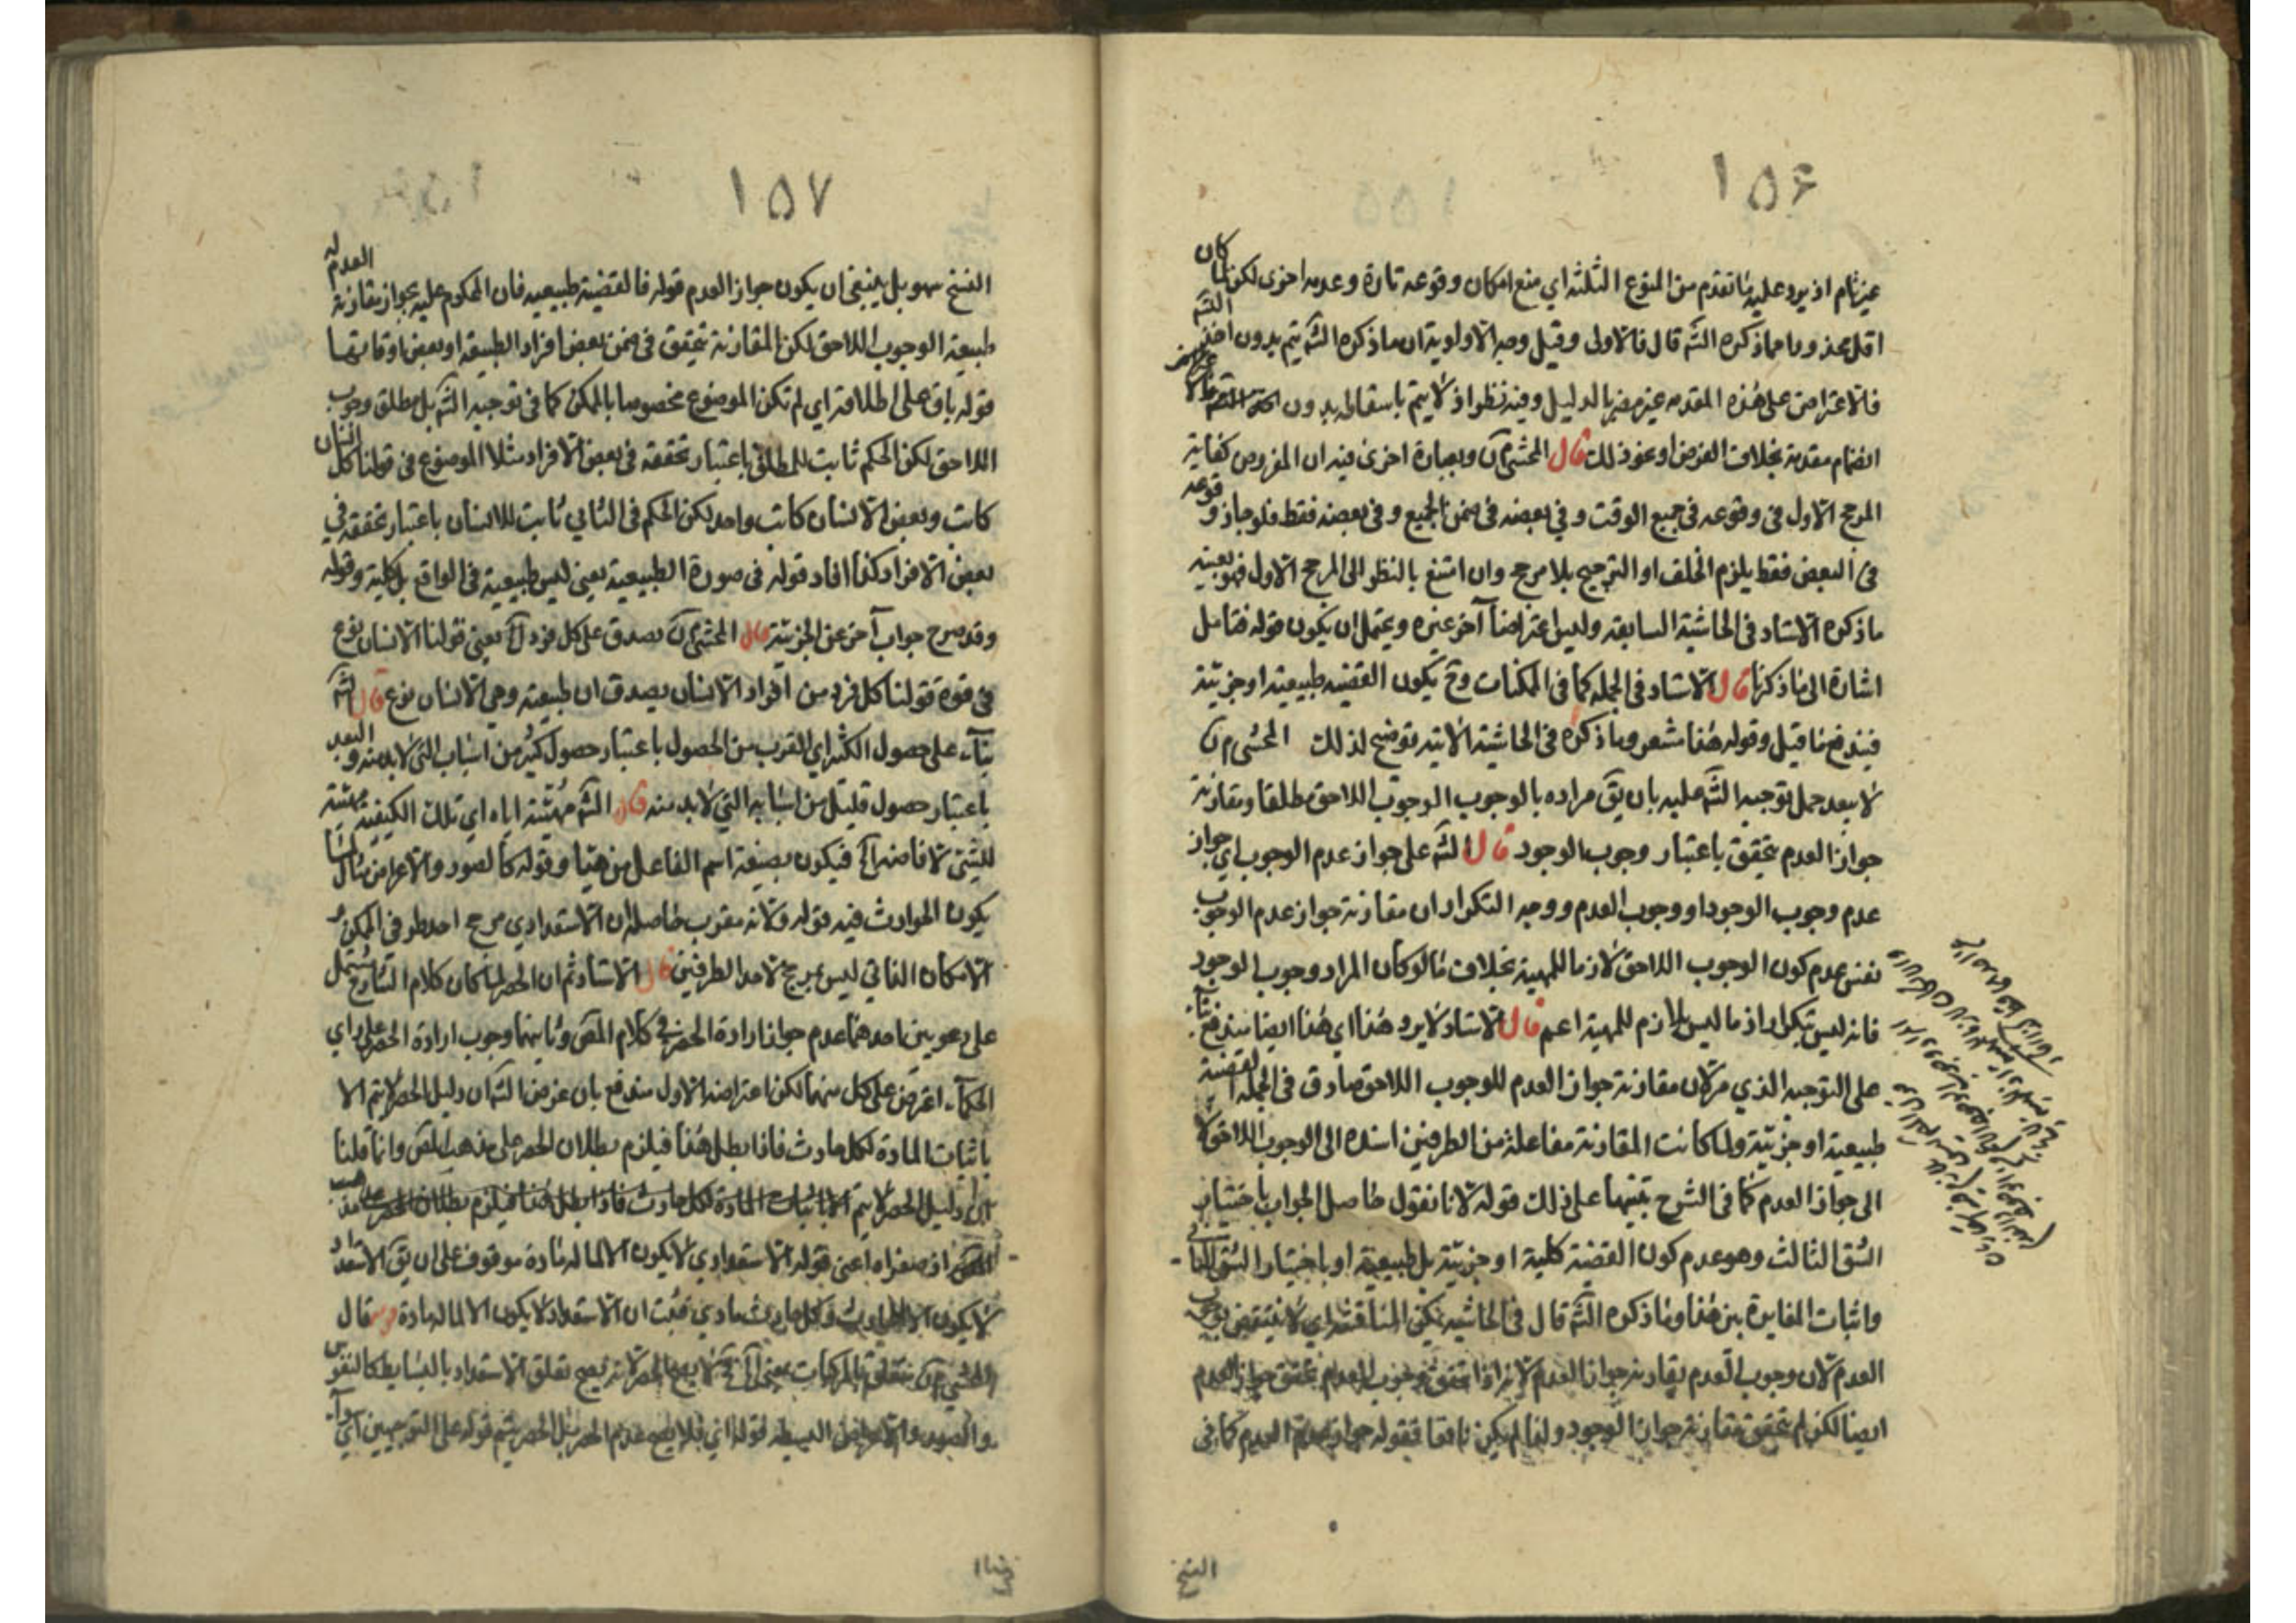 ١٥۶
غير تام اذ يرد عليه ما تقدم من المنوع الثلثة اي منع امكان وقوعه تارة وعدمه اخرى لكن لما كان
اقل محذورا مما ذكره الشه قال فالاولى وقيل وجه الاولوية ان ما ذكره الشه يتم بدون اخذ
فالاعتراض على هذه المقدمه غير مضر بالدليل وفيه نظر اذ لا يتم باسقاطه بدون
انضمام مقدمة بخلاف الفرض او نحو ذلك قال المحشي وبعبارة اخرى فيه ان المفروض كفاية
المرجح الاول فى وقوعه فى جميع الوقت و فى بعضه فى ضمن الجميع و فى بعضه فقط فلو جاز وقوعه
فى البعض فقط يلزم الخلف او الترجيح بلا مرجح وان امتنع بالنظر الى المرجح الاول فهو بعينه
ما ذكره الاستاد فى الحاشية السابقة وليس اعتراضا آخر غيره ويحتمل ان يكون قوله فتامل
اشارة الى ما ذكرنا قال الاستاد فى الجمله كما فى الممكنات وح يكون القضيه طبيعية او جزئية
فيندفع ما قيل وقوله هذا مشعر وما ذكره فى الحاشية الاتية توضيح لذلك المحشى
لا يبعد حمل توجيه الشه عليه بان يق مراده بالوجوب الوجوب اللاحق مطلقا ومقارنة
جواز العدم يتحقق باعتبار وجوب الوجود قال الشه على جواز عدم الوجوب اى جواز
عدم وجوب الوجود او وجوب العدم ووجه التكرار ان مقارنة جواز عدم الوجوب
نفس عدم كون الوجوب اللاحق لازما للمهية بخلاف ما لو كان المراد وجوب الوجود
فانه ليس بتكرار اذ ما ليس بلازم للمهية اعم قال الاستاد لا يرد هذا اى هذا ايضا يندفع
على التوجيه الذي مر لان مقارنة جواز العدم للوجوب اللاحق صادق فى الجملة القضية
طبيعية او جزئية ولما كانت المقارنة مفاعلة من الطرفين اسنده الى الوجوب اللاحق
الى جواز العدم كما فى الشرح تنبيها على ذلك قوله لانا نقول حاصل الجواب باختيار
الشق الثالث وهو عدم كون القضية كلية او جزئية بل طبيعية او باختيار الشق الثانى
واثبات المغايرة بين هذا وما ذكره الشه قال فى الحاشيه المناقشة اي لا ينتقض بوجوب
العدم لان وجوب العدم يقارنه جواز العدم لانه اذا تحقق وجوب العدم تحقق جواز العدم
ايضا لكن لم يتحقق مقارنة جواز الوجود ولذا لم يكن نافعا فقوله جواز عدم العدم كما فى
النسخ
١٥٧
النسخ سهو بل ينبغى ان يكون جواز العدم قوله فالقضية طبيعيه فان المحكوم عليه بجواز مقارنة العدم له
طبيعة الوجوب اللاحق لكن المقارنة تتحقق فى ضمن بعض افراد الطبيعة او بعض اوقاتها
قوله باق على اطلاقه اي لم تكن الموضوع مخصوصا بالممكن كما فى توجيه الشه بل مطلق وجوب
اللاحق لكن الحكم ثابت للمطلق باعتبار تحققه فى بعض الافراد مثلا الموضوع فى قولنا كل انسان
كاتب وبعض الانسان كاتب واحد لكن الحكم فى الثاني ثابت للانسان باعتبار تحققه في
بعض الافراد كذا افاد قوله فى صورة الطبيعية يعنى ليس طبيعية فى الواقع بل كلية وقوله
وقد صرح جواب آخر عن الجزئية قال المحشي يصدق على كل فرد يعنى قولنا الانسان نوع
فى قوة قولنا كل فرد من افراد الانسان يصدق ان طبيعته وهى الانسان نوع قال الشه
بناء على حصول الكثير اي القرب من الحصول باعتبار حصول كثير من اسباب التى لابد منه والبعد
باعتبار حصول قليل من اسبابه التى لابد منه قال الشه مهيئة اياه اي تلك الكيفية مهيئة
للشئ لافاضة فيكون بصيغة اسم الفاعل من هيأ وقوله كالصور والاعراض مثال لما
يكون الحوادث فيه قوله ولانه مقرب حاصله ان الاستعدادي مرجح احد طرفى الممكن و
الامكان الذاتي ليس بمرجح لاحد الطرفين قال الاستاد ثم ان الحصر لما كان كلام الشارح مشتمل
على دعويين احدهما عدم جواز ارادة الحصر في كلام المص وثانيهما وجوب ارادة الحصر على راي
الحكماء اعترض على كل منهما لكن اعتراضه الاول مندفع بان غرض الشه ان دليل الحصر لا يتم الا
باثبات المادة لكل حادث فاذا بطل هذا فيلزم بطلان الحصر على مذهب المص وانما قلنا
ان دليل الحصر لا يتم الا باثبات المادة لكل حادث فاذا بطل هذا فيلزم بطلان الحصر على مذهب
المص اذ صغراه اعنى قوله الاستعدادي لا يكون الا لما له مادة موقوف على ان يق الاستعداد
لا يكون الا للحادث وكل حادث مادي فثبت ان الاستعداد لا يكون الا لما له مادة قال
المحشي متعلق بالمركبات لا يصح الحصر لانه يصح تعلق الاستعداد بالبسايط كالنفوس
والصور والاعراض البسيطة قوله فلا يصح عدم الحصر بل الحصر يتم قوله على التوجيهين اي سواء